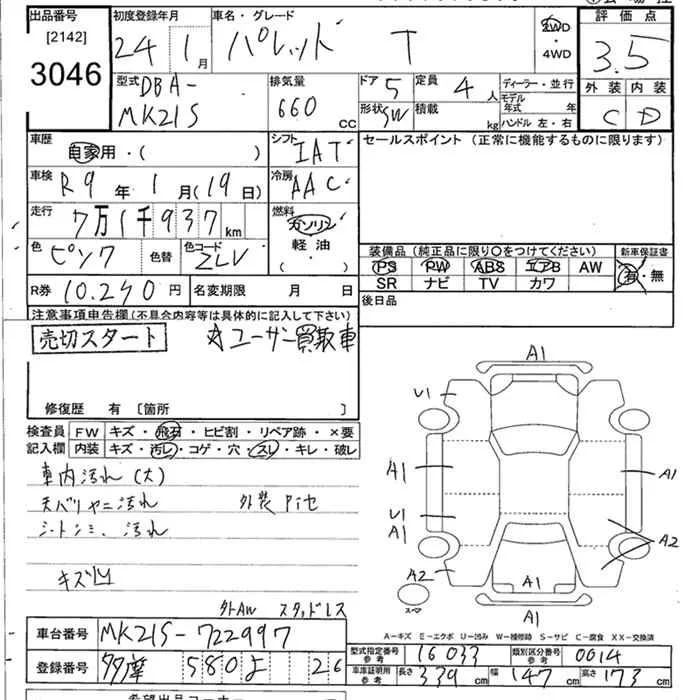 出品番号 初度登録年月 車名・グレード 評価点
[2142] 24 1月 パレット T 2WD・4WD 3.5
3046
型式 DBA-MK21S 排気量 660cc ドア 5 定員 4人 ディーラー・並行 外装 内装
形状 SW 積載 kg モデル年式 年 C D
ハンドル 左・右
車歴 自家用・( ) シフト IAT セールスポイント(正常に機能するものに限ります)
車検 R9年 1月(19日) 冷房 AAC
走行 7万1千937km 燃料 ガソリン
軽油
・( )・
色 ピンク 色替 色コード ZLV 装備品(純正品に限り○をつけてください) 新車保証書
PS PW ABS エアB AW 有・無
SR ナビ TV カワ
R券 10,290円 名変期限 月 日 後日品
注意事項申告欄(不具合内容等は具体的に記入して下さい)
売切スタート ☆ユーザー買取車
修復歴 有 [箇所 ]
検査員 FW キズ・飛石・ヒビ割・リペア跡・×要
記入欄 内装 キズ・汚レ・コゲ・穴・スレ・キレ・破レ
車内汚れ(大)
天バリヤニ汚れ 外装Piセ
シートシミ、汚れ
キズ凹
外AW スタッドレス
A1
U1
A1 A1
U1
A1 A2
A2 A1
スペア A1
A-キズ E-エクボ U-凹み W-補修跡 S-サビ C-腐食 XX-交換済
車台番号 MK21S-722997
型式指定番号 参考 16033 類別区分番号 参考 0014
登録番号 多摩 580 よ 26
車庫証明用 参考 長さ 339cm 幅 147cm 高さ 173cm
希望出品コーナー